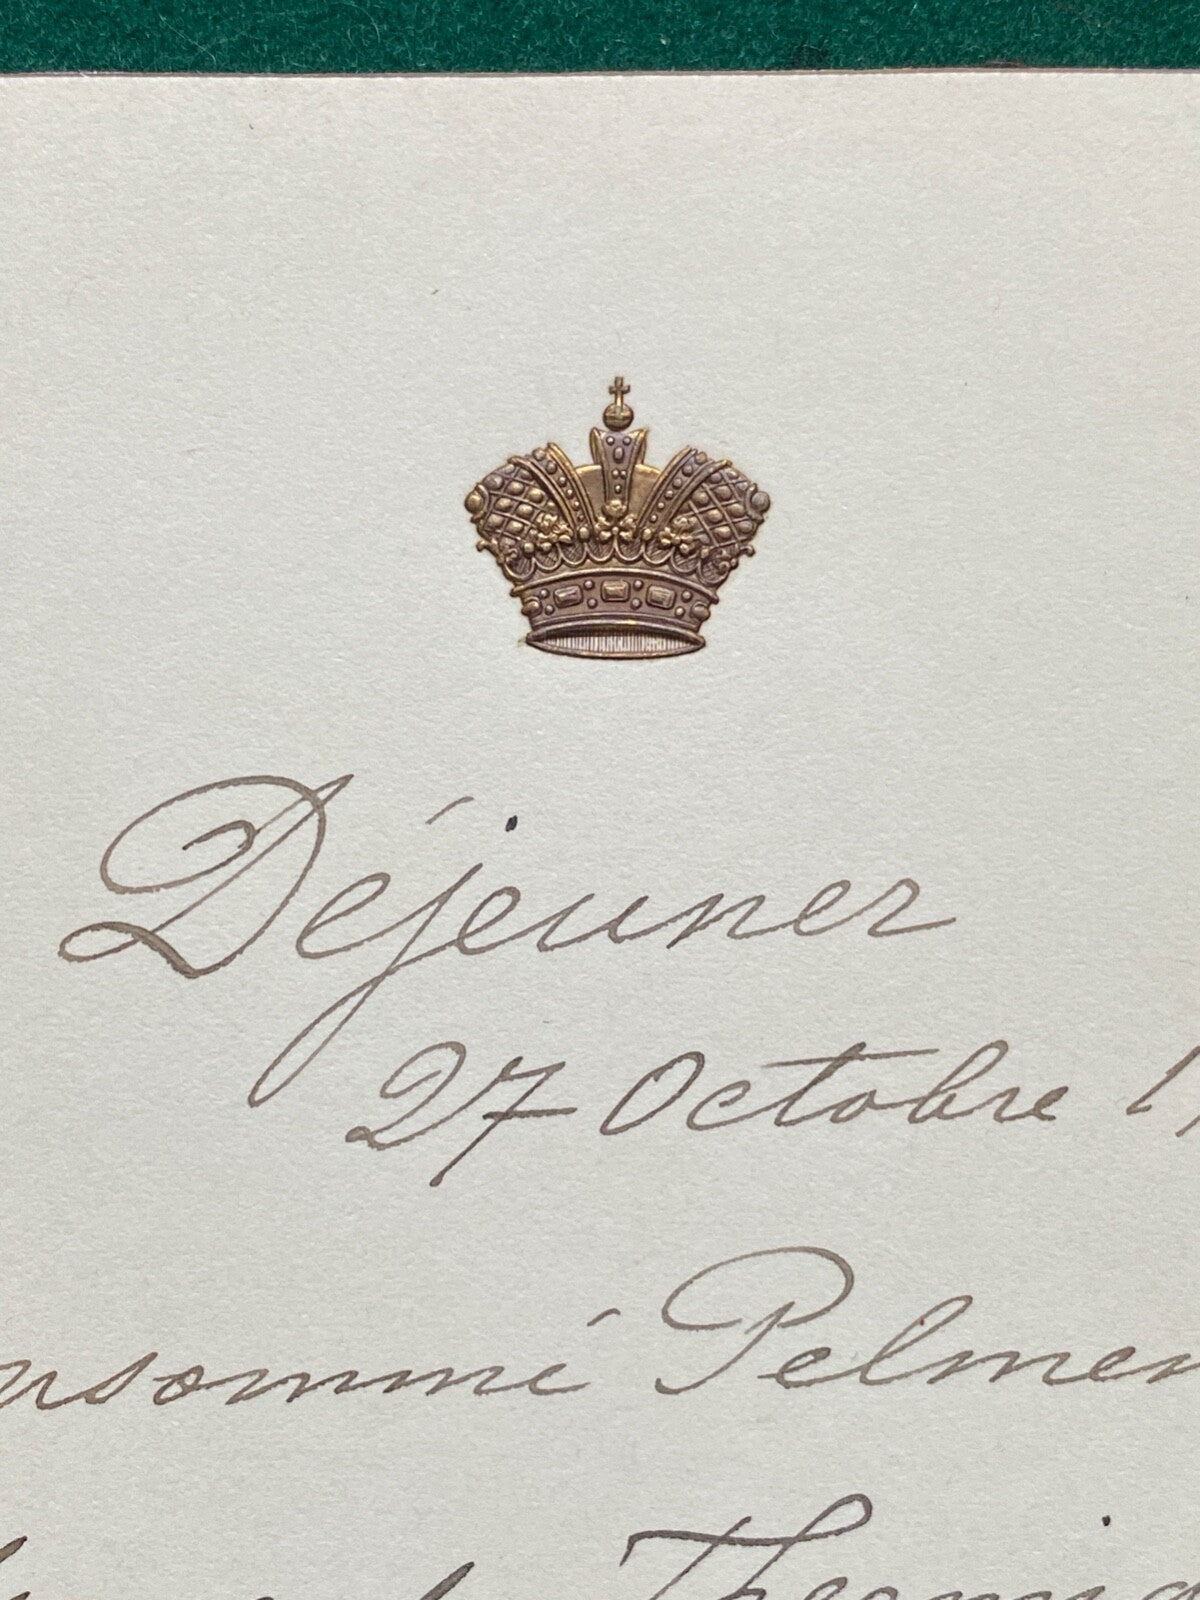 Déjeuner
27 Octobre 1
onsommé Pelmen